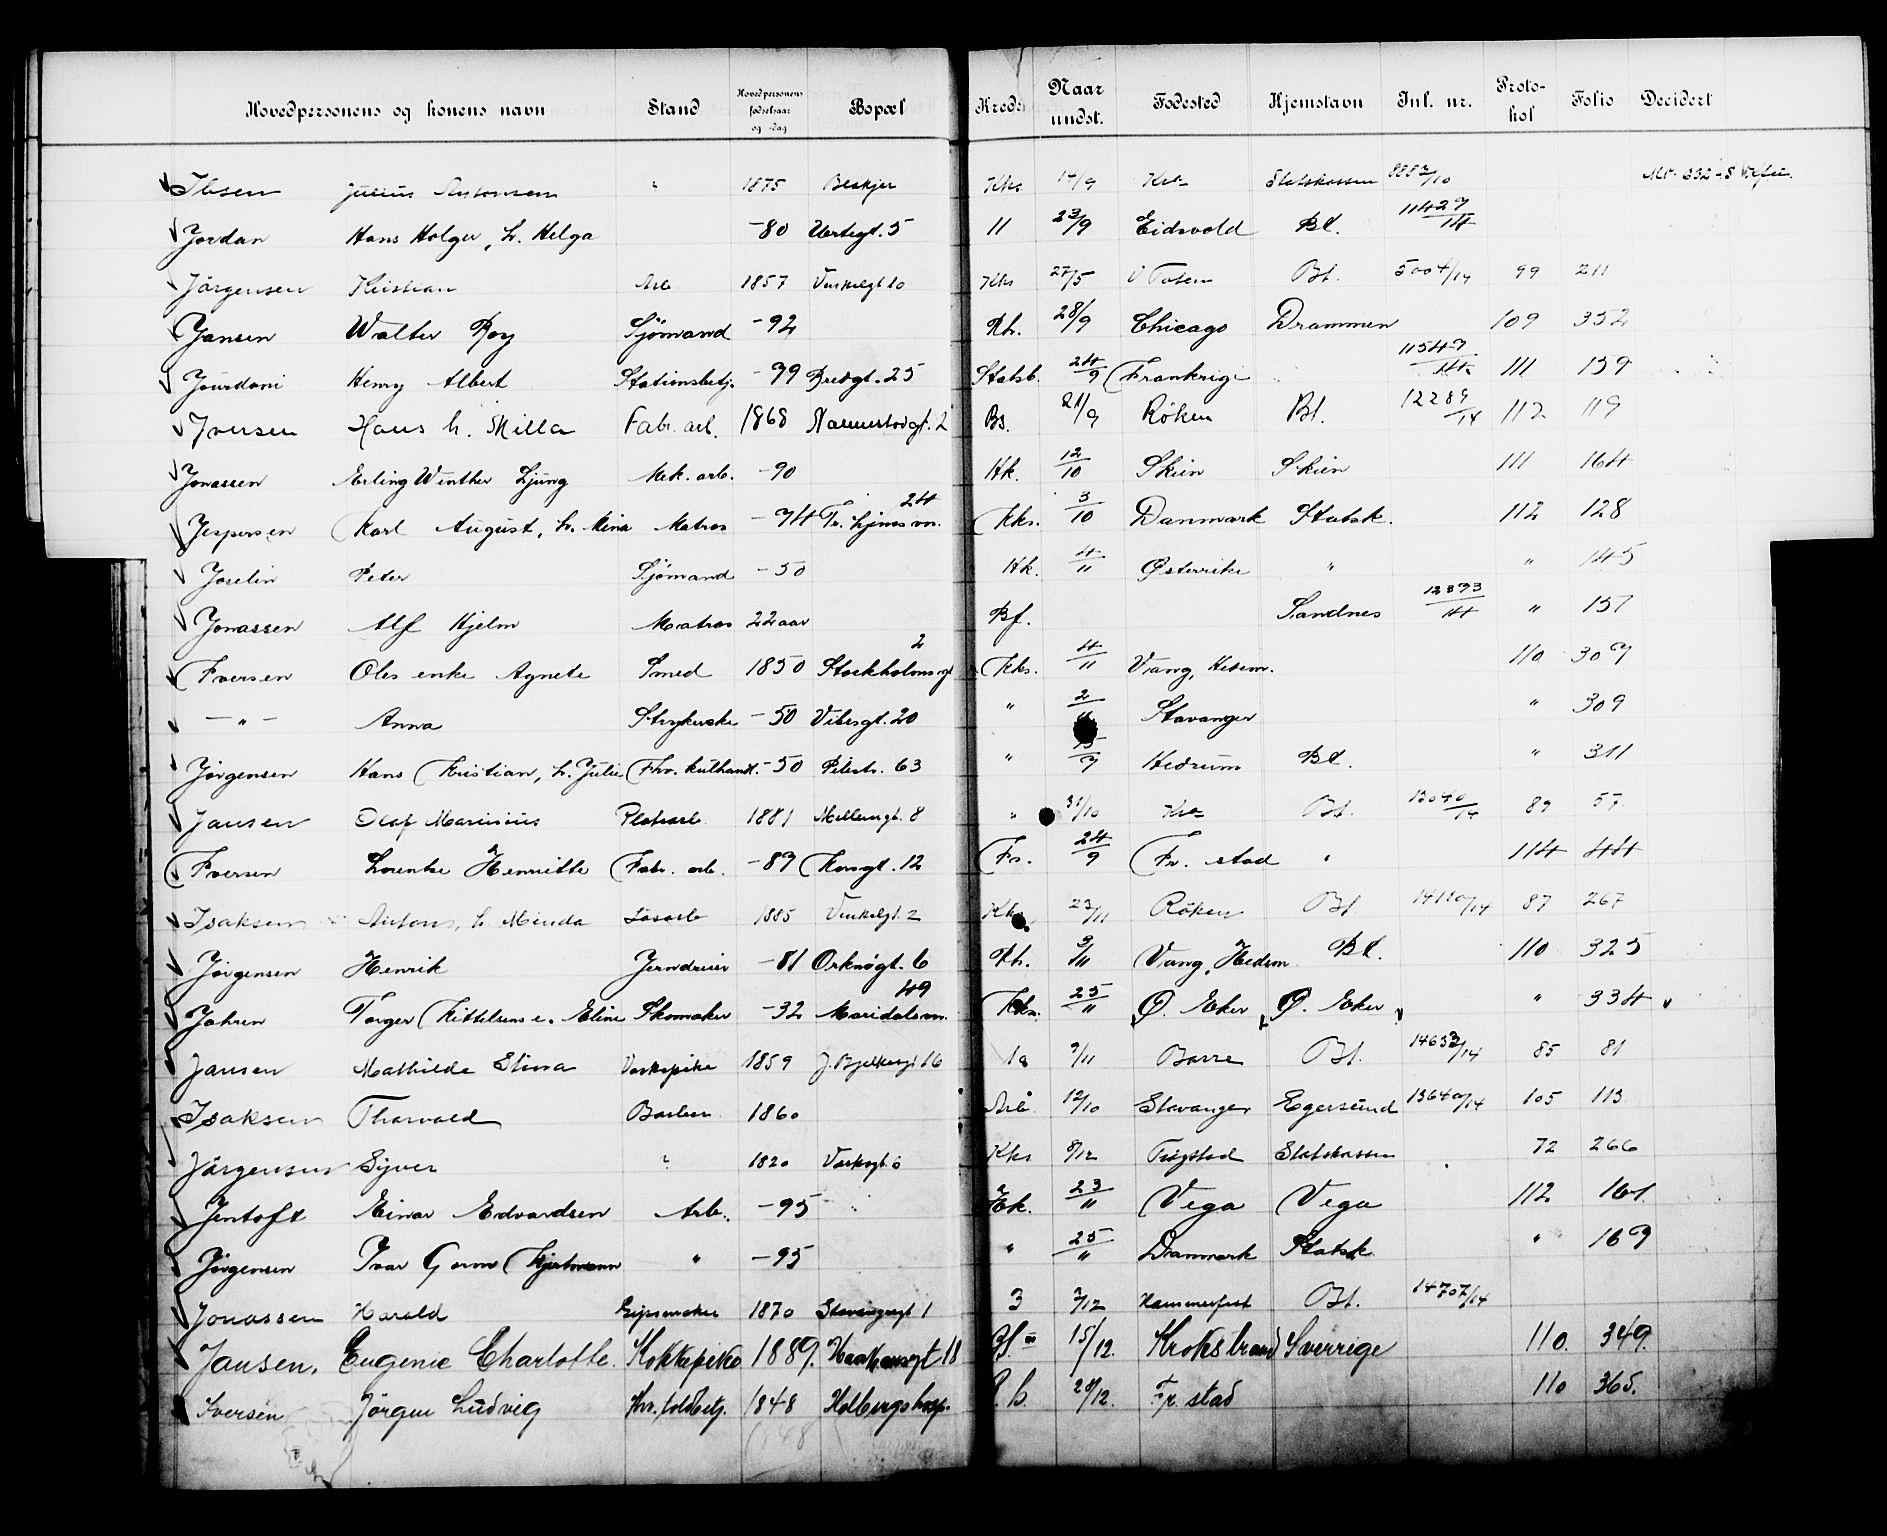 Hovedpersonens og konens navn Stand Hovedpersonens fødselsaar og -dag Bopæl Kreds Naar undst. Fødested Hjemstavn Inl. nr. Protokol Folio Decidert
Ibsen Julius Antonsen " 1875 Beskjer Kks 17/9 Kra Statskassen 8882/10
Jordan Hans Holger, h. Helga -80 Vertsgt. 5 11 23/9 Eidsvold Bt. 11427/14
Jørgensen Kristian Arb. 1857 Verkslgt 10 Kks 27/5 V Toten Bt. 5004/14 99 211
Jansen Walter Roy Sjömand -92 Rh. 28/9 Chicago Drammen 109 352
Jourdani Henry Albert Stationsbetj. -99 Bredgt. 25 Statsb. 24/9 Frankrig 11549/14 111 159
Iversen Hans h. Milla Fabr. arb. 1868 Bs. 21/9 Røken Bt. 12289/14 112 119
Jonassen Erling Winther Ljung Mek. arb. -90 Hk. 12/10 Skien Skien 111 164
Jespersen Karl August, h. Mina Matros -74 Tr. hjemsvn. 24 Kks. 3/10 Danmark Statsk. 112 128
Joselin Peter Sjömand -50 Hk. 4/11 Østerrike " " 145
Jonassen Alf Hjelm Matros 22 aar Bf. Sandnes 12893/14 " 157
Iversen Oles enke Agnete Smed 1850 Stockholmsgt 2 Kks. 4/11 Vang, Hedem. 110 309
— " — Anna Strykerske -50 Vibesgt. 20 " 2/11 Stavanger " 309
Jørgensen Hans Kristian, h. Julie Fhv. kulhandl. -50 Pilestr. 63 " 15/9 Hedrum Bt. " 311
Jansen Olaf Marinius Pletarb. 1881 Møllergt. 8 " 31/10 Kra Bt. 13040/14 89 57
Iversen Lorentse Henriette Fabr. arb. -89 Korsgt. 12 Fr. 24/9 Fr. stad " 114 44
Isaksen Anton, h. Minda Løsarb 1885 Verkslgt. 2 Kks 23/11 Røken Bt 14110/14 87 267
Jørgensen Henrik Jerndreier -81 Orknøgt. 6 Rh. 3/11 Vang, Hedem Bt. 110 325
Jahren Torger Kittelsens e. Eline Skomaker -32 Maridalsvn. 49 Kks. 25/11 Ø. Eker Ø. Eker " 334
Jansen Mathilde Stina Vaskepike 1859 J. Bjelkesgt 16 1a 9/11 Borre Bt. 14632/14 85 81
Isaksen Thorvald Barber 1860 Arb. 12/10 Stavanger Egersund 13640/14 105 113
Jørgensen Syver " 1820 Kks 8/12 Trøgstad Statskassen 72 266
Jentoft Einar Edvardsen Arb. -95 Hk. 23/11 Vega Vega 112 161
Jørgensen Ivar Gorm Hjortmann " -95 " 25/11 Danmark Statsk. " 169
Jonassen Harald Gipsmaker 1870 Stavangergt 1 3 3/12 Hammerfest Bt. 14707/14
Jansen, Eugenie Charlotte. Kokkepike 1889. Haakonsgt 18 15/12. Krokstrand Sverrige 110. 349.
Iversen Jørgen Ludvig Fhv. toldbetj. 1848 Holbergs hosp. R. h. 28/12. Fr. stad 110 365.